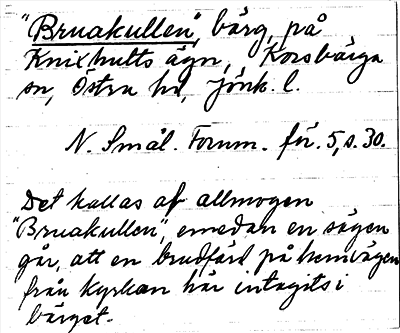 "Bruakullen", bärg, på
Knixhults ägn, Korsbärga
sn, Östra hd, Jönk. l.
N. Smål. Fornm. för. 5, s. 30.
Det kallas af allmogen
"Bruakullen", emedan en sägen
går, att en brudfärd på hemvägen
från kyrkan här intagits i
bärget.